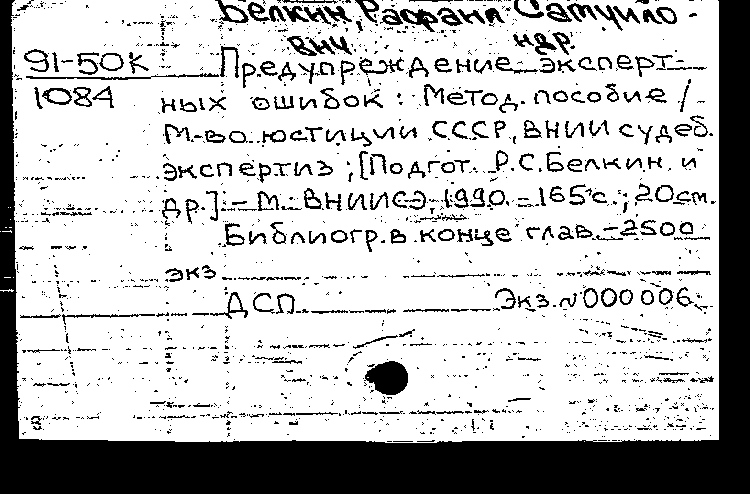 Белкин, Рафаил Самуило-
вич и др.
91-50к
1084
Предупреждение эксперт-
ных ошибок : Метод. пособие /
М-во юстиции СССР, ВНИИ судеб.
экспертиз ; [Подгот. Р.С.Белкин и
др.] - М. : ВНИИСЭ, 1990. - 165 с. ; 20 см.
Библиогр. в конце глав. - 2500
экз
ДСП Экз. № 000006.